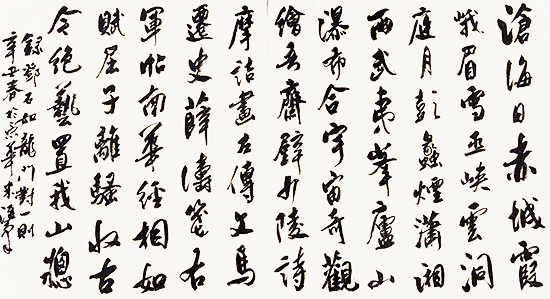 滄海日赤城霞
峨眉雪巫峽雲洞
庭月彭蠡煙瀟湘
雨武夷峯廬山
瀑布合宇宙奇觀
繪吾齋壁少陵詩
摩詰畫左傳文馬
遷史薛濤箋右
軍帖南華經相如
賦屈子離騷收古
今絕藝置我山窗
錄鄧石如龍門對一則
辛丑春於京華